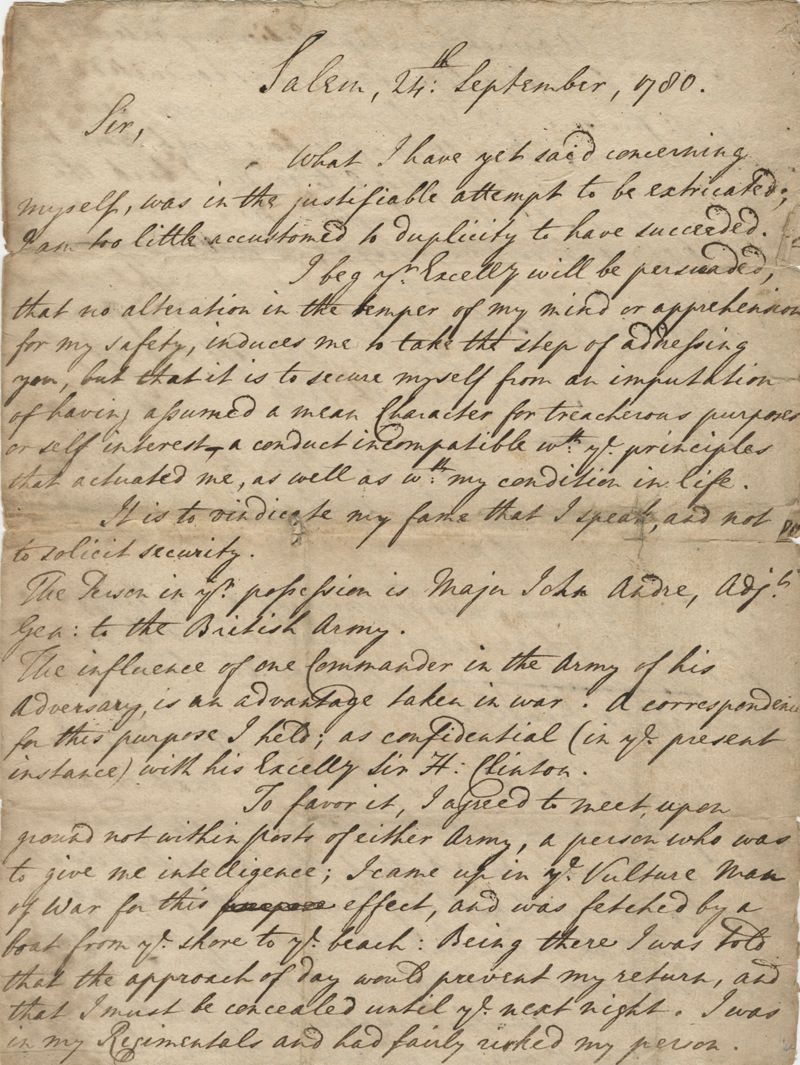 Salem, 24:th September, 1780.
Sir,
What I have yet said concerning
myself, was in the justifiable attempt to be extricated;
I am too little accustomed to duplicity to have succeeded.
I beg yr. Excelly will be persuaded,
that no alteration in the temper of my mind or apprehension
for my safety, induces me to take the step of addressing
you, but that it is to secure myself from an imputation
of having assumed a mean Character for treacherous purposes
or self interest, a conduct incompatible wth. ye. principles
that actuated me, as well as wth. my condition in life.
It is to vindicate my fame that I speak, and not
to solicit security.
The Person in yr. possession is Major John Andre, Adjt.
Gen: to the British Army.
The influence of one Commander in the Army of his
Adversary, is an advantage taken in war. A correspondence
for this purpose I held; as confidential (in ye. present
instance) with his Excelly Sir H: Clinton.
To favor it, I agreed to meet, upon
ground not within posts of either Army, a person who was
to give me intelligence; I came up in ye. Vulture Man
of War for this purpose effect, and was fetched by a
boat from ye. shore to ye. beach: Being there I was told
that the approach of day would prevent my return, and
that I must be concealed until ye. next night. I was
in my Regimentals and had fairly risked my person.